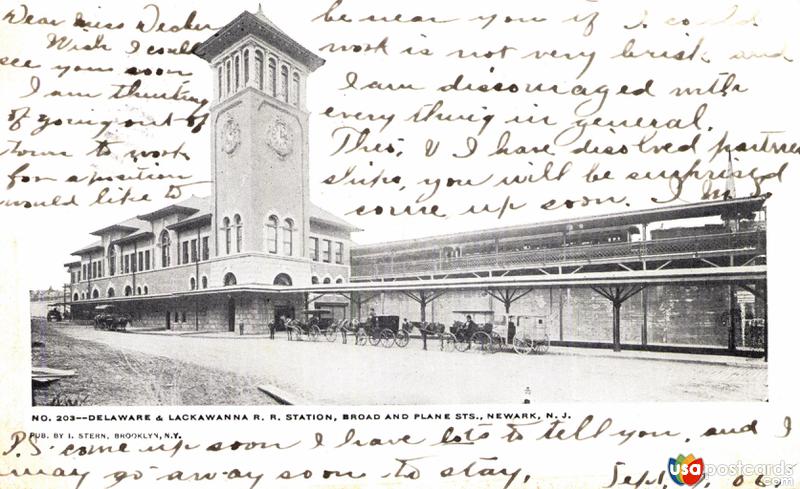 Dear Miss Decker
Wish I could
see you soon
I am thinking
of going out of
town to work
for a position
would like to
be near you if I could
work is not very brisk and
I am discouraged with
everything in general.
Theo. & I have disolved partner
ships, you will be surprised
come up soon. I
NO. 203--DELAWARE & LACKAWANNA R. R. STATION, BROAD AND PLANE STS., NEWARK, N. J.
PUB. BY I. STERN, BROOKLYN, N.Y.
P.S. come up soon I have lots to tell you, and I
may go away soon to stay.
Sept. 06.
usapostcards.com